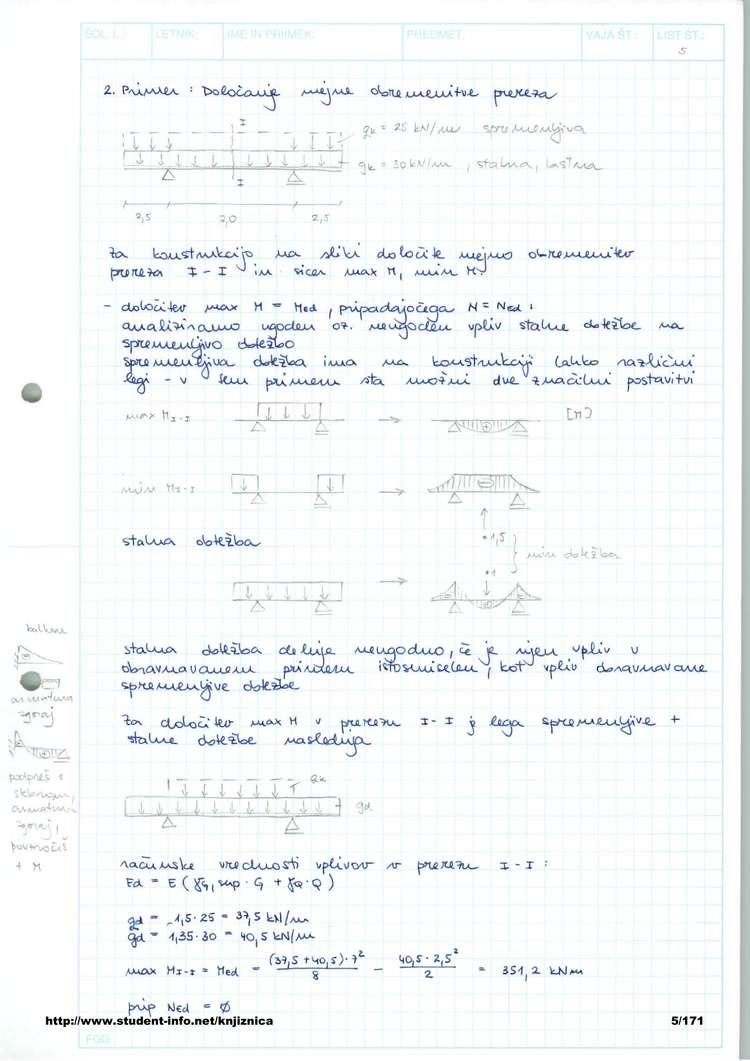 ŠOL. L.: LETNIK: IME IN PRIIMEK: PREDMET: VAJA ŠT.: LIST ŠT.:
5
2. Primer : Določanje mejne obremenitve prereza
I
qk = 25 kN/m spremenljiva
gk = 30 kN/m , stalna, lastna
I
2,5 7,0 2,5
Za konstrukcijo na sliki določite mejno obremenitev
prereza I - I in sicer max M, min M.
- določitev max M = Med , pripadajočega N = Ned :
analiziramo ugoden oz. neugoden vpliv stalne obtežbe na
spremenljivo obtežbo
spremenljiva obtežba ima na konstrukciji lahko različni
legi - v tem primeru sta možni dve značilni postavitvi
max MI-I [M]
min MI-I
stalna obtežba
• 1,5
• 1
min obtežba
balkone
armatura
zgoraj
podpreš s
armatura
zgoraj,
povzročiš
+ M
stalna obtežba deluje neugodno, če je njen vpliv v
obravnavanem primeru istosmiselen, kot vpliv obravnavane
spremenljive obtežbe
Za določitev max M v prerezu I - I je lega spremenljive +
stalne obtežbe naslednja
qk
gd
računske vrednosti vplivov v prerezu I - I :
Ed = E ( γG,sup · G + γQ · Q )
qd = 1,5 · 25 = 37,5 kN/m
gd = 1,35 · 30 = 40,5 kN/m
max MI-I = Med = (37,5 + 40,5) · 7² / 8 - 40,5 · 2,5² / 2 = 351,2 kNm
prip Ned = Ø
http://www.student-info.net/knjiznica 5/171
FGG